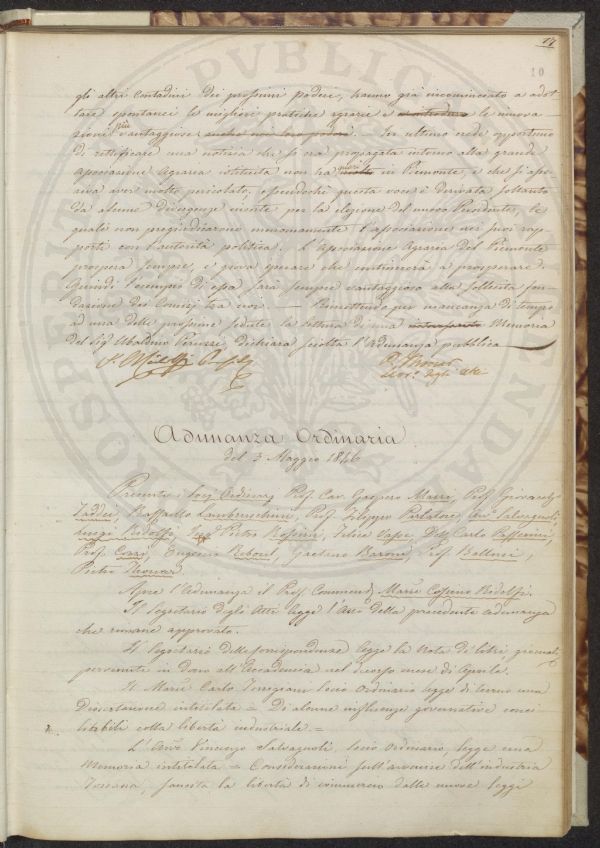 17
10
gli altri contadini dei prossimi poderi, hanno già incominciato a adot-
tare spontanei le migliori pratiche agrarie e introdurre le innova-
zioni più vantaggiose anche nei loro poderi. — Per ultimo crede opportuno
di rettificare una notizia che si era propagata intorno alla grande
associazione Agraria istituita non ha molto in Piemonte, e che si asse-
riva aver molto pericolato, essendochè questa voce è derivata soltanto
da alcune divergenze insorte per la elezione del nuovo Presidente, le
quali non pregiudicarono menomamente l'associazione nei suoi rap-
porti con l'autorità politica. L'Associazione Agraria del Piemonte
prospera sempre, e giova sperare che continuerà a prosperare.
Quindi l'esempio di essa sarà sempre vantaggioso alla sollecita fon-
dazione dei Comizj tra noi. — Rimettendo per mancanza di tempo
ad una delle prossime sedute la lettura di una Memoria
del Sig. Ubaldino Peruzzi dichiara sciolta l'Adunanza pubblica
C. Ridolfi Presid.
P. Thouar
Seg.º degli Atti
Adunanza Ordinaria
del 3 Maggio 1846
Presenti i Socj Ordinarj Prof. Cav. Gaspero Mazzi, Prof. Giovacch.
Taddei, Raffaello Lambruschini, Prof. Filippo Parlatore, Avv. Salvagnoli,
Luigi Ridolfi, Ing. Pietro Rossini, Felice Vasse, Dott. Carlo Passerini,
Prof. Cozzi, Eugenio Reboul, Gaetano Baroni, Prof.
Pietro Thouar
Apre l'Adunanza il Prof. Commend. March. Cosimo Ridolfi.
Il Segretario degli Atti legge l'Atto della precedente adunanza
che rimane approvato.
Il Segretario delle Corrispondenze legge la Nota di libri e giornali
pervenute in dono all'Accademia nel decorso mese di Aprile.
Il March. Carlo Torrigiani Socio Ordinario legge di turno una
Dissertazione intitolata = Di alcune influenze governative conci-
liabili colla libertà industriale =
L'Avv. Vincenzo Salvagnoli, Socio Ordinario, legge una
Memoria intitolata = Considerazioni sull'avvenire dell'industria
Toscana, sancita la libertà di commercio dalle nuove leggi